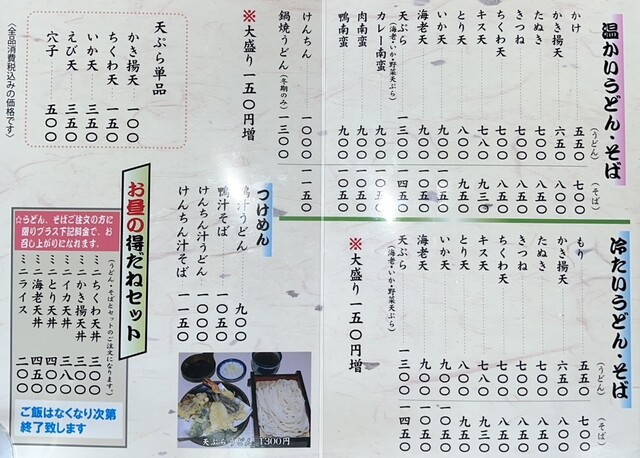 温かいうどん・そば
(うどん) (そば)
かけ 五五〇 七〇〇
かき揚天 六五〇 八〇〇
たぬき 七〇〇 八五〇
きつね 七〇〇 八五〇
ちくわ天 七〇〇 八五〇
キス天 七八〇 九三〇
とり天 八〇〇 九五〇
いか天 九〇〇 一〇五〇
海老天 九〇〇 一〇五〇
天ぷら 一三〇〇 一四五〇
(海老・いか・野菜天ぷら)
カレー南蛮 九〇〇 一〇五〇
肉南蛮 九〇〇 一〇五〇
鴨南蛮 九〇〇 一〇五〇
けんちん 一〇〇〇 一一五〇
鍋焼うどん(冬期のみ) 一三〇〇
※大盛り一五〇円増
天ぷら単品
かき揚天 一〇〇
ちくわ天 一五〇
いか天 三五〇
えび天 三五〇
穴子 五〇〇
(全品消費税込みの価格です)
冷たいうどん・そば
(うどん) (そば)
もり 五五〇 七〇〇
かき揚天 六五〇 八〇〇
たぬき 七〇〇 八五〇
きつね 七〇〇 八五〇
ちくわ天 七〇〇 八五〇
キス天 七八〇 九三〇
とり天 八〇〇 九五〇
いか天 九〇〇 一〇五〇
海老天 九〇〇 一〇五〇
天ぷら 一三〇〇 一四五〇
(海老・いか・野菜天ぷら)
※大盛り一五〇円増
つけめん
鴨汁うどん 九〇〇
鴨汁そば 一〇五〇
けんちん汁うどん 一〇〇〇
けんちん汁そば 一一五〇
天ぷらうどん 1300円
お昼の得だねセット
☆うどん、そばご注文の方に
限りプラス下記料金で、お
召し上がりになれます。
(うどん・そばとセットのご注文になります)
ミニちくわ天丼 三〇〇
ミニかき揚天丼 三〇〇
ミニイカ天丼 三八〇
ミニとり天丼 四〇〇
ミニ海老天丼 四五〇
ミニライス 二〇〇
ご飯はなくなり次第
終了致します